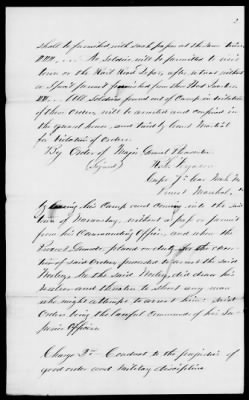 2
shall be furnished with such papers at the same time
No Soldier will be permitted to visit
town or the Rail Road Depot, after sunset without
a Special permit furnished from this Head Quarters
All Soldiers found out of Camp in violation
of these Orders, will be arrested and confined in
the guard house, and tried by Court Martial
for violation of Orders.
By Order of Major General
(Signed)
Capt
Provost Marshal,
by leaving his Camp and coming into the said
town of without a pass or permit
from his Commanding Officer, and when the
Provost Guards, placed on duty for the execu
tion of said Orders proceeded to arrest the said
he the said did draw his
and threaten to shoot any man
who might attempt to arrest him. said
Orders being the lawful commands of his Su
perior Officer.
Charge 2d Conduct to the prejudice of
good order and Military discipline